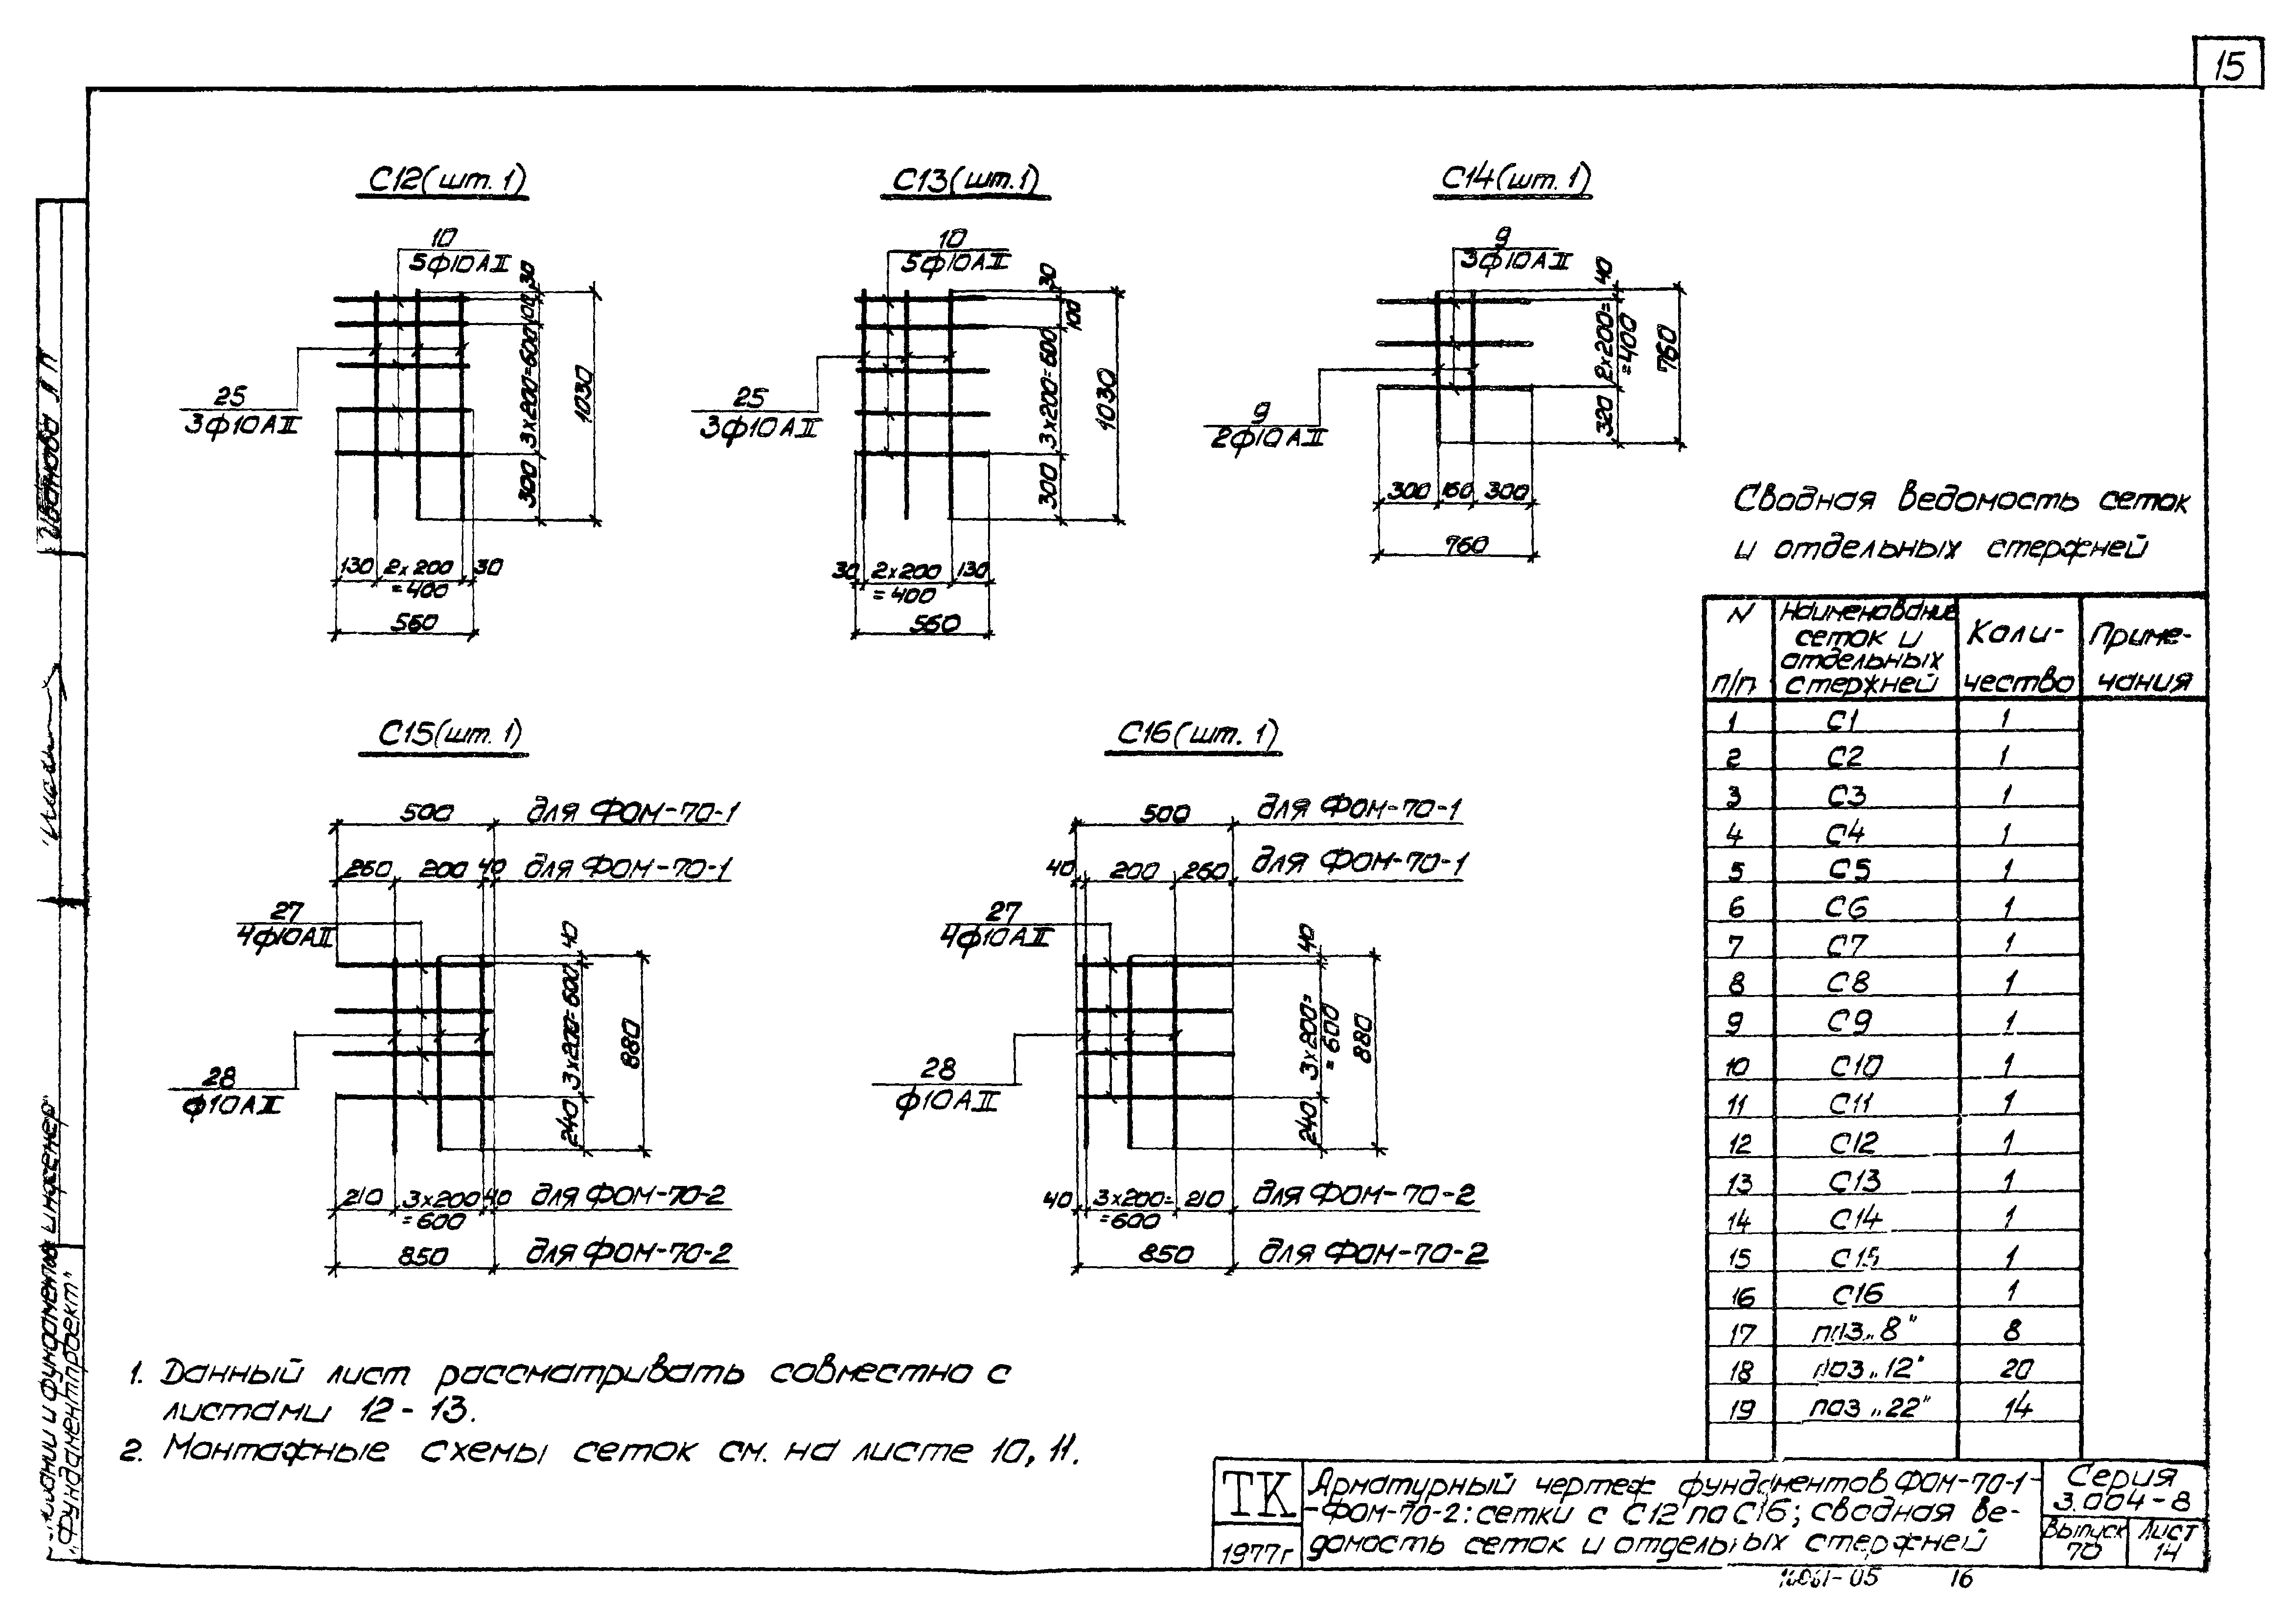 15
С12 (шт. 1)
10
5ф10АII
25
3ф10АII
30
100
3х200=600
300
1030
130
2х200
=400
30
560
С13 (шт. 1)
10
5ф10АII
25
3ф10АII
30
100
3х200=600
300
1030
30
2х200
=400
130
560
С14 (шт. 1)
9
3ф10АII
9
2ф10АII
40
2х200=
=400
320
760
300
160
300
760
С15 (шт. 1)
500 для ФОМ-70-1
260 200 40 для ФОМ-70-1
27
4ф10АII
28
ф10АII
40
3х200=600
240
880
210 3х200 40 для ФОМ-70-2
=600
850 для ФОМ-70-2
С16 (шт. 1)
500 для ФОМ-70-1
40 200 260 для ФОМ-70-1
27
4ф10АII
28
ф10АII
40
3х200=
=600
240
880
40 3х200= 210 для ФОМ-70-2
=600
850 для ФОМ-70-2
Сводная ведомость сеток
и отдельных стержней
N п/п Наименование сеток и отдельных стержней Коли-чество Приме-чания
1 С1 1
2 С2 1
3 С3 1
4 С4 1
5 С5 1
6 С6 1
7 С7 1
8 С8 1
9 С9 1
10 С10 1
11 С11 1
12 С12 1
13 С13 1
14 С14 1
15 С15 1
16 С16 1
17 поз „8" 8
18 поз „12" 20
19 поз „22" 14
1. Данный лист рассматривать совместно с
листами 12-13.
2. Монтажные схемы сеток см. на листе 10, 11.
ТК
1977г
Арматурный чертеж фундаментов ФОМ-70-1-
-ФОМ-70-2: сетки с С12 по С16; сводная ве-
домость сеток и отдельных стержней
Серия
3.004-8
Выпуск
70
Лист
14
-05
16
Иванова Л П
и фундаментов инженер
„Фундаментпроект"